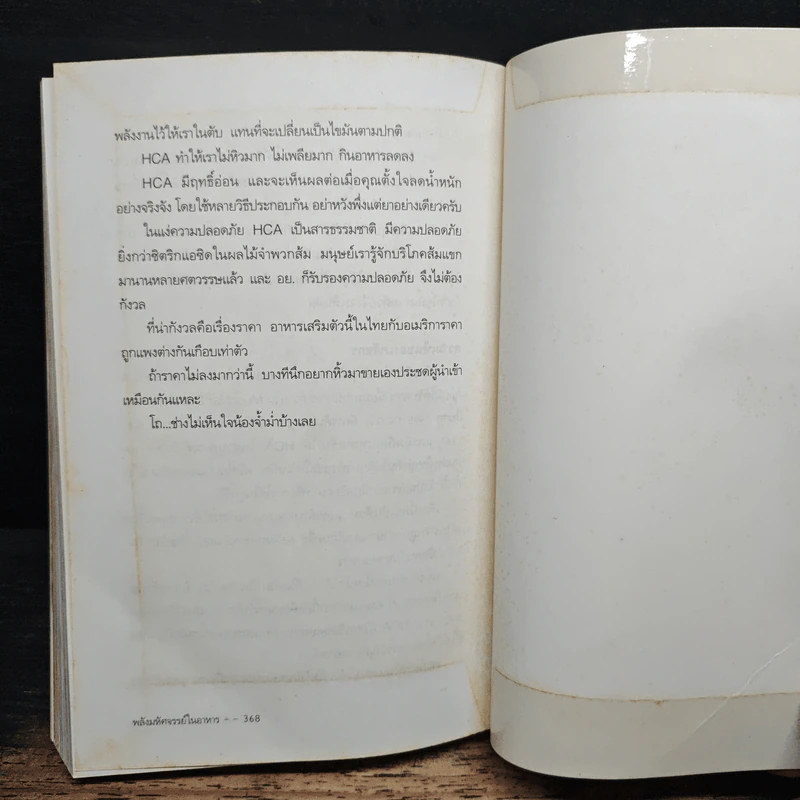 พลังงานไว้ให้เราในตับ แทนที่จะเปลี่ยนเป็นไขมันตามปกติ
HCA ทำให้เราไม่หิวมาก ไม่เพลียมาก กินอาหารลดลง
HCA มีฤทธิ์อ่อน และจะเห็นผลต่อเมื่อคุณตั้งใจลดน้ำหนัก
อย่างจริงจัง โดยใช้หลายวิธีประกอบกัน อย่าหวังพึ่งแต่ยาอย่างเดียวครับ
ในแง่ความปลอดภัย HCA เป็นสารธรรมชาติ มีความปลอดภัย
ยิ่งกว่าซิตริกแอซิดในผลไม้จำพวกส้ม มนุษย์เรารู้จักบริโภคส้มแขก
มานานหลายศตวรรษแล้ว และ อย. ก็รับรองความปลอดภัย จึงไม่ต้อง
กังวล
ที่น่ากังวลคือเรื่องราคา อาหารเสริมตัวนี้ในไทยกับอเมริการาคา
ถูกแพงต่างกันเกือบเท่าตัว
ถ้าราคาไม่ลงมากว่านี้ บางทีนึกอยากหิ้วมาขายเองประชดผู้นำเข้า
เหมือนกันแหละ
โถ...ช่างไม่เห็นใจน้องจ้ำม่ำบ้างเลย
พลังมหัศจรรย์ในอาหาร - - 368